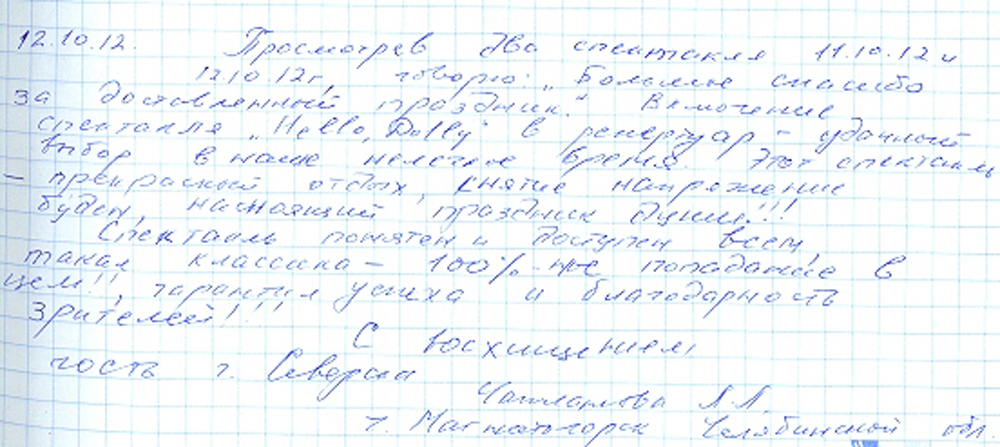 12.10.12. Просмотрев два спектакля 11.10.12 и
12.10.12г, говорю: „Большое спасибо
за доставленный праздник“. Включение
спектакля „Hello, Dolly“ в репертуар – удачный
выбор в наше нелегкое время. Этот спектакль
– прекрасный отдых, снятие напряжения
буден, настоящий праздник души!!!
Спектакль понятен и доступен всем,
такая классика – 100%-ное попадание в
цель!!, гарантия успеха и благодарность
зрителей!!!
С восхищением,
гость г. Северска
Л.Л.
г. Магнитогорск Челябинской обл.